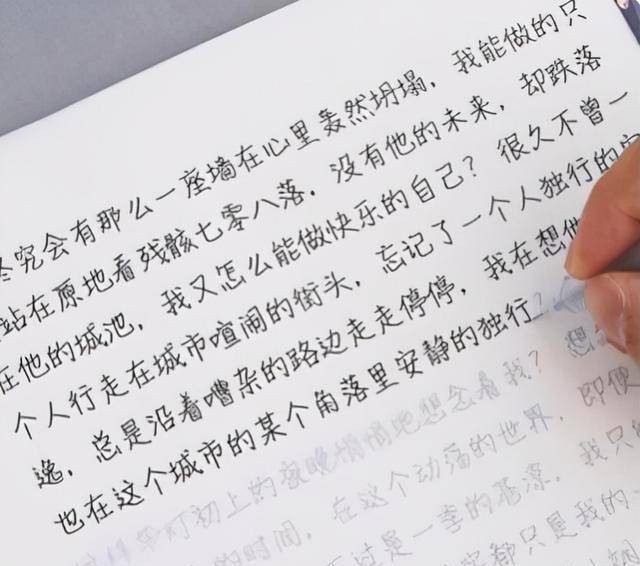 终究会有那么一座墙在心里轰然坍塌，我能做的只
站在原地看残骸七零八落。没有他的未来，却跌落
在他的城池，我又怎么能做快乐的自己？很久不曾一
个人行走在城市喧闹的街头，忘记了一个人独行的安
逸，总是沿着嘈杂的路边走走停停，我在想他
也在这个城市的某个角落里安静的独行？想
灯初上的夜晚悄悄地想念着我？
的时间，在这个动荡的世界，即便
过是一季的苍凉，我只
都只是我的